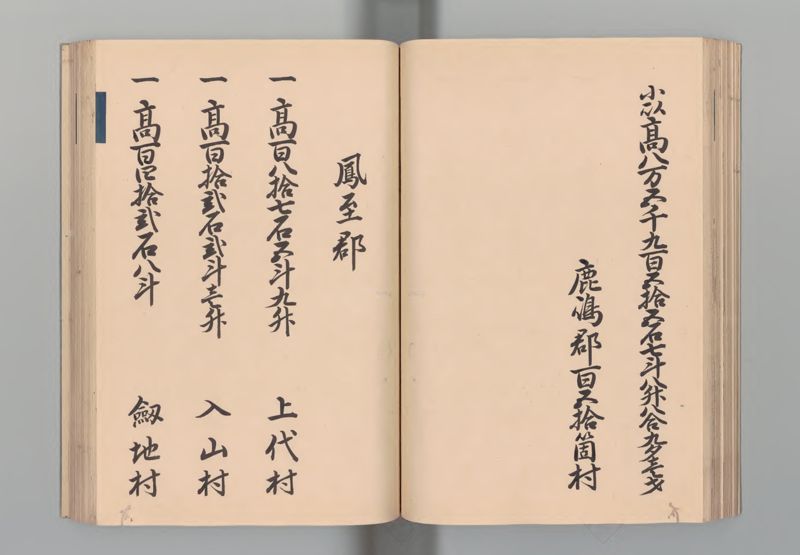 小以高八万五千九百五拾五石七斗八升八合九夕壱才
鹿嶋郡百五拾箇村
鳳至郡
一 高百八拾七石五斗九升 上代村
一 高百拾弐石弐斗壱升 入山村
一 高百四拾弐石八斗 劔地村